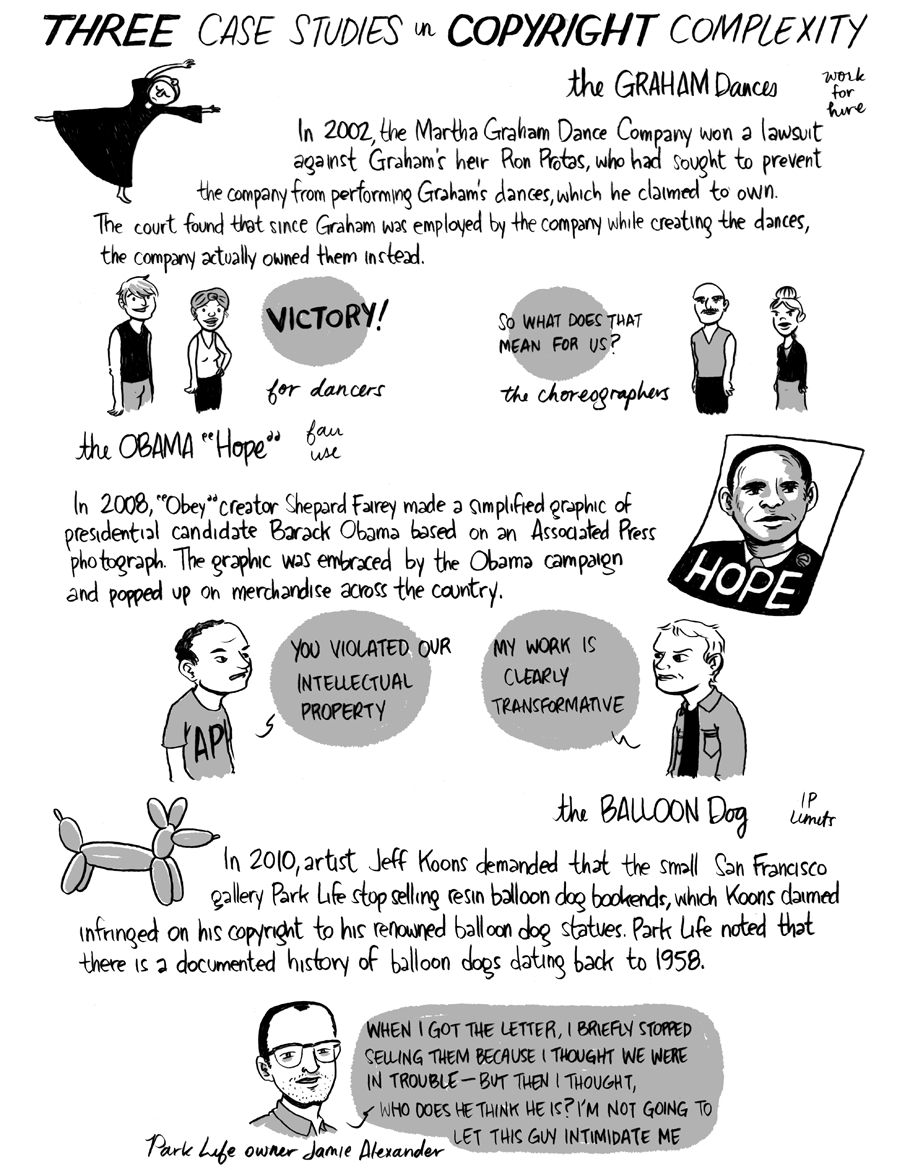 THREE CASE STUDIES in COPYRIGHT COMPLEXITY
the GRAHAM Dances
work
for
hire
In 2002, the Martha Graham Dance Company won a lawsuit
against Graham's heir Ron Protas, who had sought to prevent
the company from performing Graham's dances, which he claimed to own.
The court found that since Graham was employed by the company while creating the dances,
the company actually owned them instead.
VICTORY!
for dancers
SO WHAT DOES THAT
MEAN FOR US?
the choreographers
the OBAMA "Hope"
fair
use
In 2008, "Obey" creator Shepard Fairey made a simplified graphic of
presidential candidate Barack Obama based on an Associated Press
photograph. The graphic was embraced by the Obama campaign
and popped up on merchandise across the country.
HOPE
YOU VIOLATED OUR
INTELLECTUAL
PROPERTY
AP
MY WORK IS
CLEARLY
TRANSFORMATIVE
the BALLOON Dog
IP
Limits
In 2010, artist Jeff Koons demanded that the small San Francisco
gallery Park Life stop selling resin balloon dog bookends, which Koons claimed
infringed on his copyright to his renowned balloon dog statues. Park Life noted that
there is a documented history of balloon dogs dating back to 1958.
WHEN I GOT THE LETTER, I BRIEFLY STOPPED
SELLING THEM BECAUSE I THOUGHT WE WERE
IN TROUBLE—BUT THEN I THOUGHT,
WHO DOES HE THINK HE IS? I'M NOT GOING TO
LET THIS GUY INTIMIDATE ME
Park Life owner Jamie Alexander